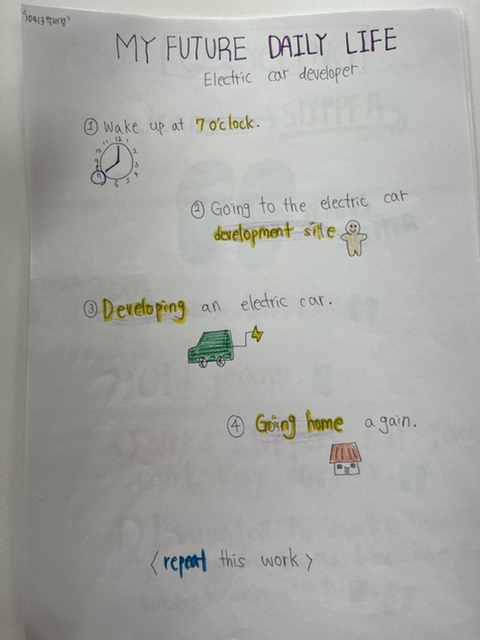 MY FUTURE DAILY LIFE
Electric car developer
① Wake up at 7 o'clock.
12 1
11
10 2
9 3
4
7 6 5
② Going to the electric car
development site
③ Developing an electric car.
④ Going home again.
〈 repeat this work 〉